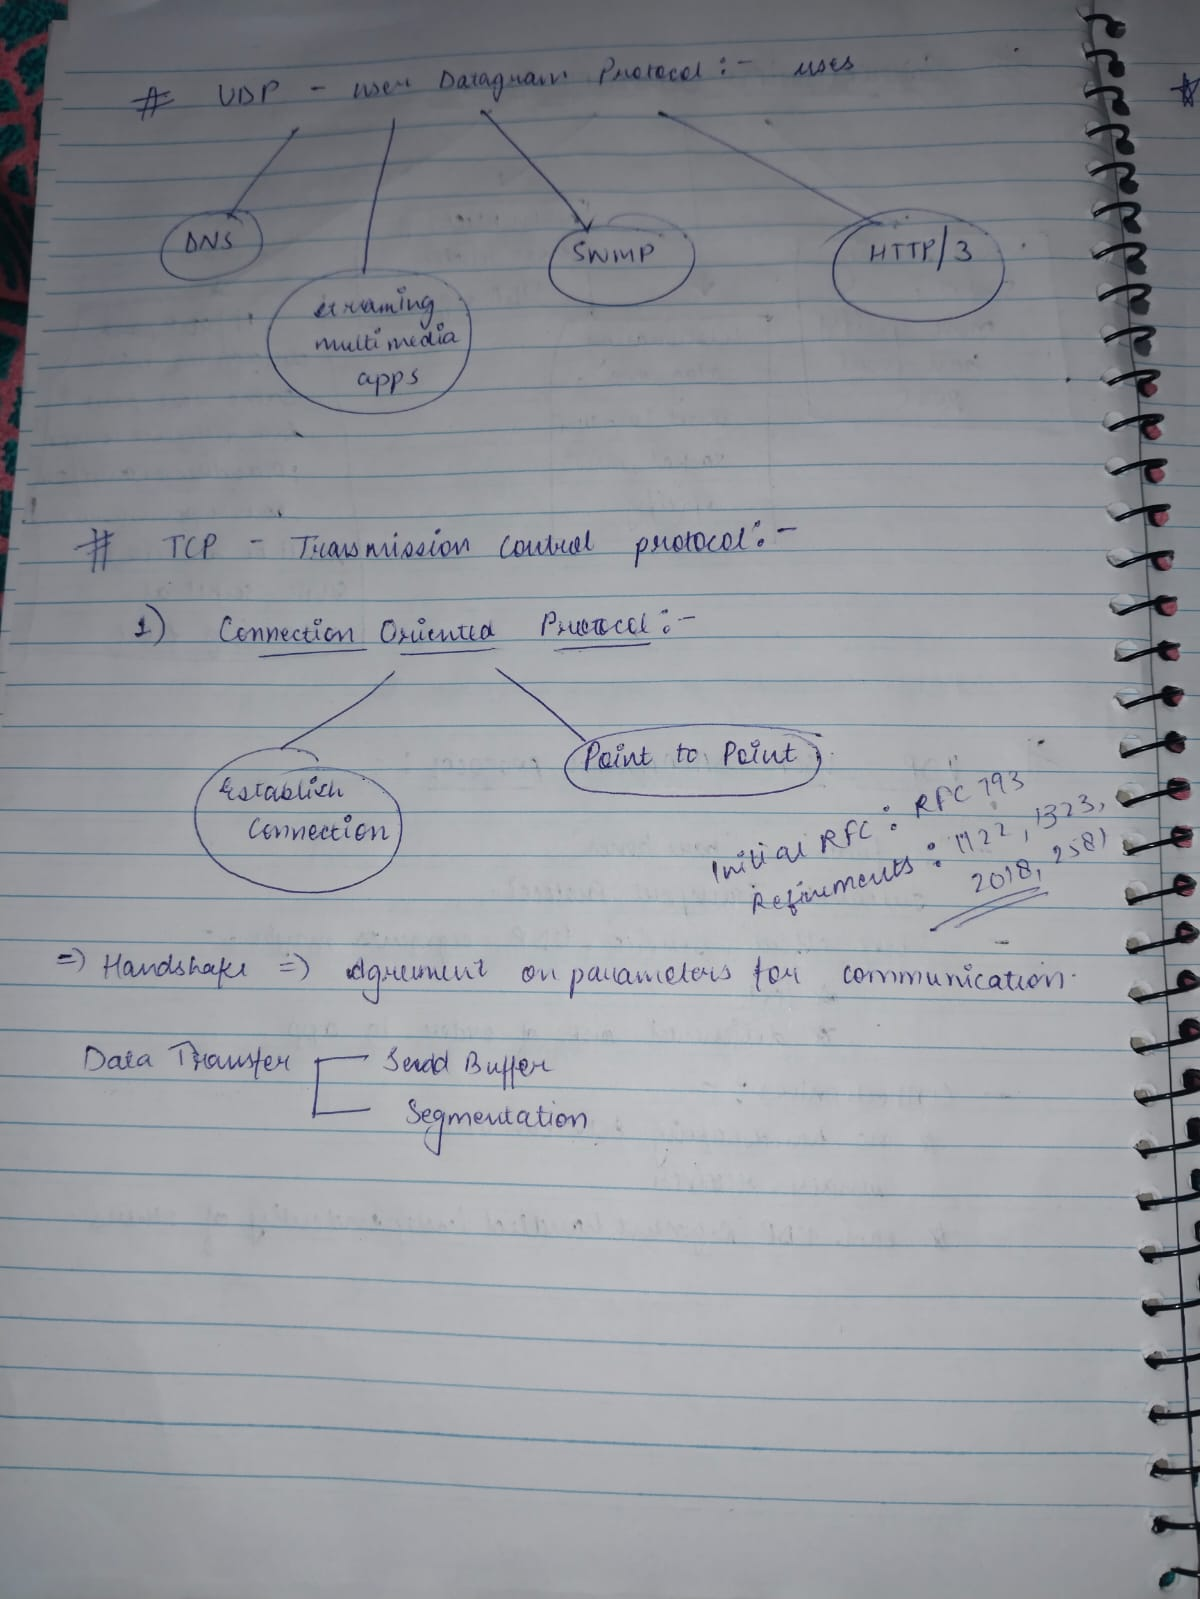 # UDP - User Datagram Protocol :- uses
DNS
streaming
multimedia
apps
SNMP
HTTP/3
# TCP - Transmission Control protocol :-
1) Connection Oriented Protocol :-
Establish
Connection
Point to Point
Initial RFC : RFC 793
Refinements : 1122, 1323,
2018, 2581
=) Handshake =) Agreement on parameters for communication.
Data Transfer
Send Buffer
Segmentation